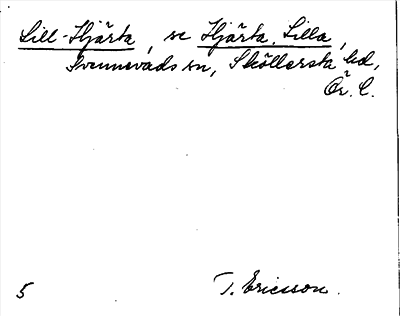 Lill-Hjärta, se Hjärta, Lilla,
Svennevads sn, Sköllersta hd,
Ör. l.
5 T. Ericsson.